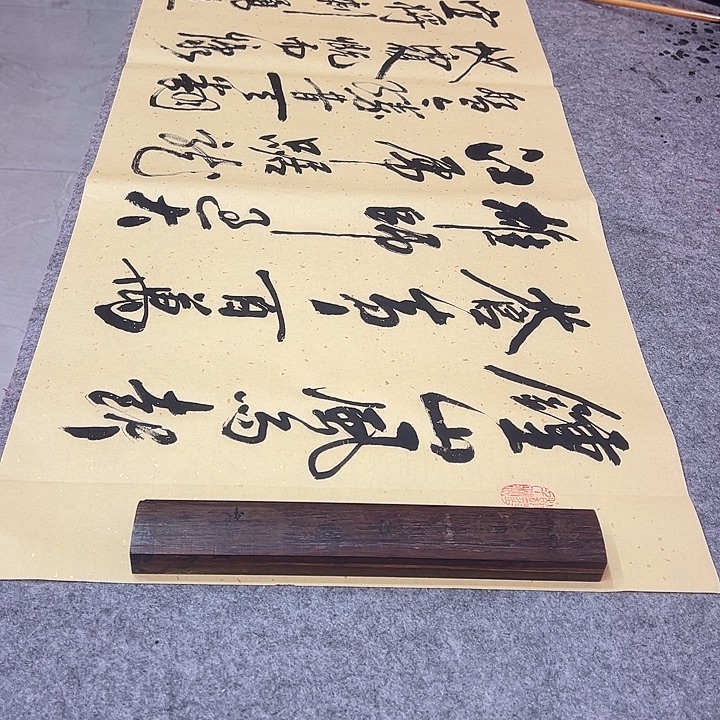 鍾山風雨起
蒼黃百萬
雄師過大
江虎踞龍
盤今勝昔天翻
地覆慨而慷
宜將剩勇